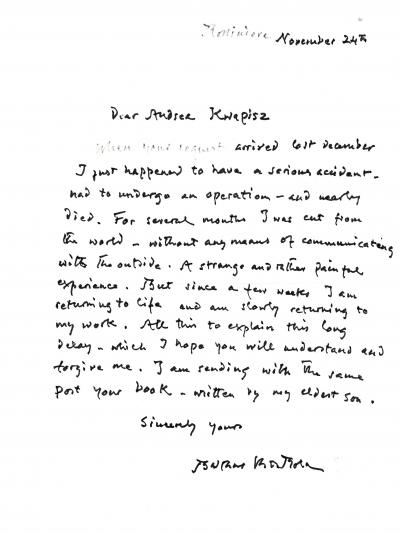 November 24th
Dear Andrea Kwapisz
When your request arrived last december
I just happened to have a serious accident -
had to undergo an operation - and nearly
died. For several months I was cut from
the world - without any means of communicating
with the outside. A strange and rather painful
experience. But since a few weeks I am
returning to life and am slowly returning to
my work. All this to explain this long
delay - which I hope you will understand and
forgive me. I am sending with the same
post your book - written by my eldest son.
Sincerely yours